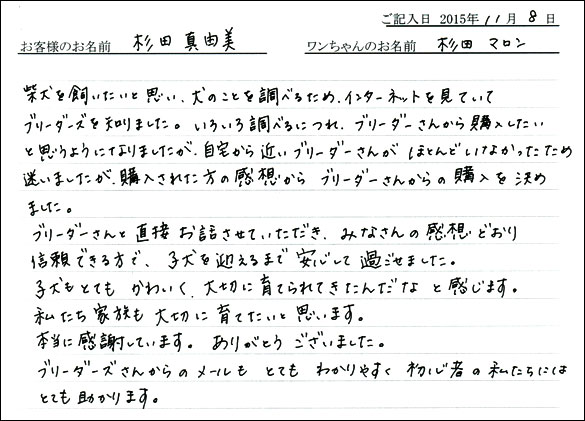 ご記入日 2015年 11月 8日
お客様のお名前 杉田 真由美 ワンちゃんのお名前 杉田 マロン
柴犬を飼いたいと思い、犬のことを調べるため、インターネットを見ていて
ブリーダーズを知りました。いろいろ調べるにつれ、ブリーダーさんから購入したい
と思うようになりましたが、自宅から近いブリーダーさんが ほとんどいなかったため
迷いましたが、購入された方の感想から ブリーダーさんからの購入を決め
ました。
ブリーダーさんと直接お話させていただき、みなさんの感想どおり
信頼できる方で、子犬を迎えるまで安心して過ごせました。
子犬もとてもかわいく、大切に育てられてきたんだなと感じます。
私たち家族も大切に育てたいと思います。
本当に感謝しています。ありがとうございました。
ブリーダーズさんからのメールも とても わかりやすく 初心者の私たちには
とても助かります。